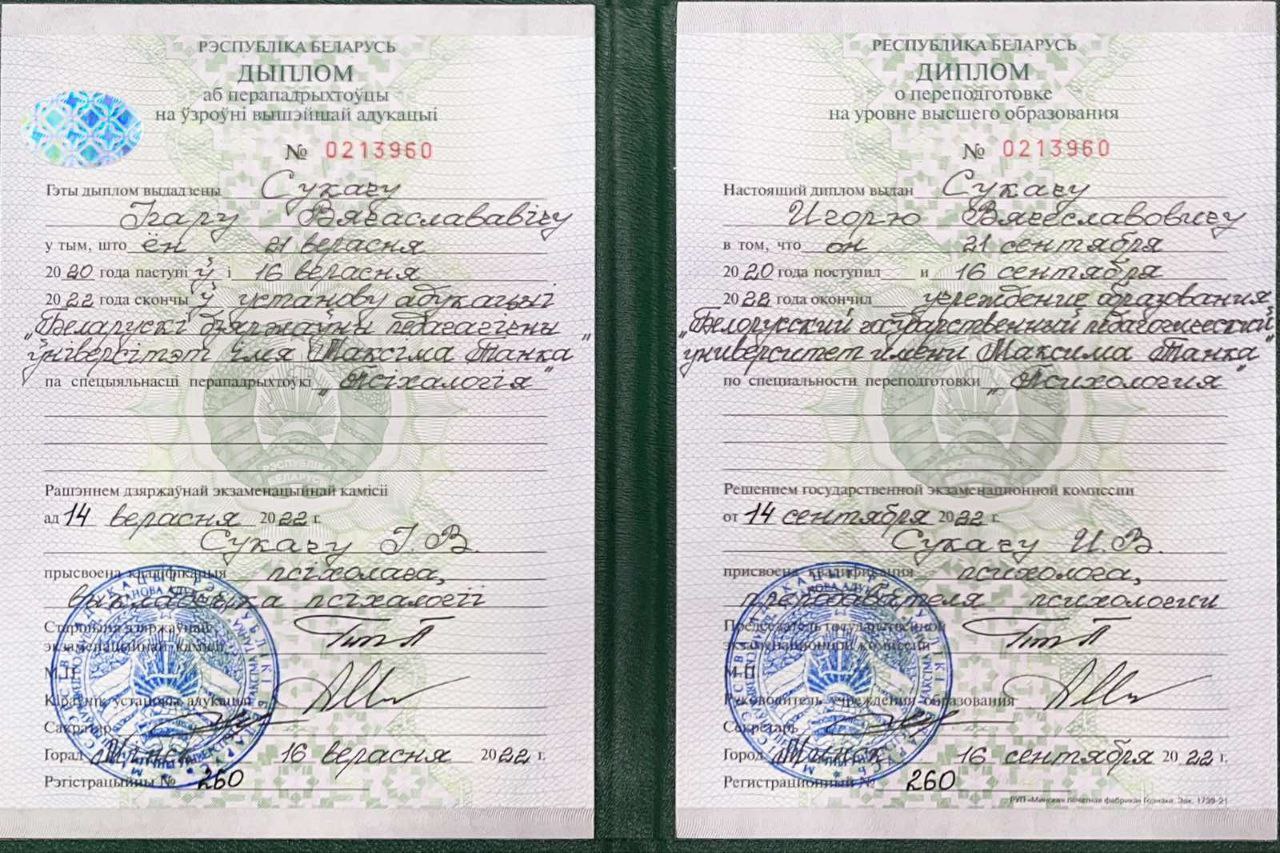 РЭСПУБЛІКА БЕЛАРУСЬ
ДЫПЛОМ
аб перападрыхтоўцы
на ўзроўні вышэйшай адукацыі
№ 0213960
Гэты дыплом выдадзены Сукачу
Ігару Вячаслававічу
у тым, што ён 21 верасня
2020 года паступіў і 16 верасня
2022 года скончыў установу адукацыі
"Беларускі дзяржаўны педагагічны
ўніверсітэт імя Максіма Танка"
па спецыяльнасці перападрыхтоўкі "Псіхалогія"
Рашэннем дзяржаўнай экзаменацыйнай камісіі
ад 14 верасня 2022 г.
Сукачу І. В.
прысвоена кваліфікацыя псіхолага,
выкладчыка псіхалогіі
Старшыня дзяржаўнай
экзаменацыйнай камісіі
М.П.
Кіраўнік установы адукацыі
Сакратар
Горад Мінск 16 верасня 2022 г.
Рэгістрацыйны № 260
РЕСПУБЛИКА БЕЛАРУСЬ
ДИПЛОМ
о переподготовке
на уровне высшего образования
№ 0213960
Настоящий диплом выдан Сукачу
Игорю Вячеславовичу
в том, что он 21 сентября
2020 года поступил и 16 сентября
2022 года окончил учреждение образования
"Белорусский государственный педагогический
университет имени Максима Танка"
по специальности переподготовки "Психология"
Решением государственной экзаменационной комиссии
от 14 сентября 2022 г.
Сукачу И. В.
присвоена квалификация психолога,
преподавателя психологии
Председатель государственной
экзаменационной комиссии
М.П.
Руководитель учреждения образования
Секретарь
Город Минск 16 сентября 2022 г.
Регистрационный № 260
РУП «Минская печатная фабрика» Гознака. Зак. 1739-21